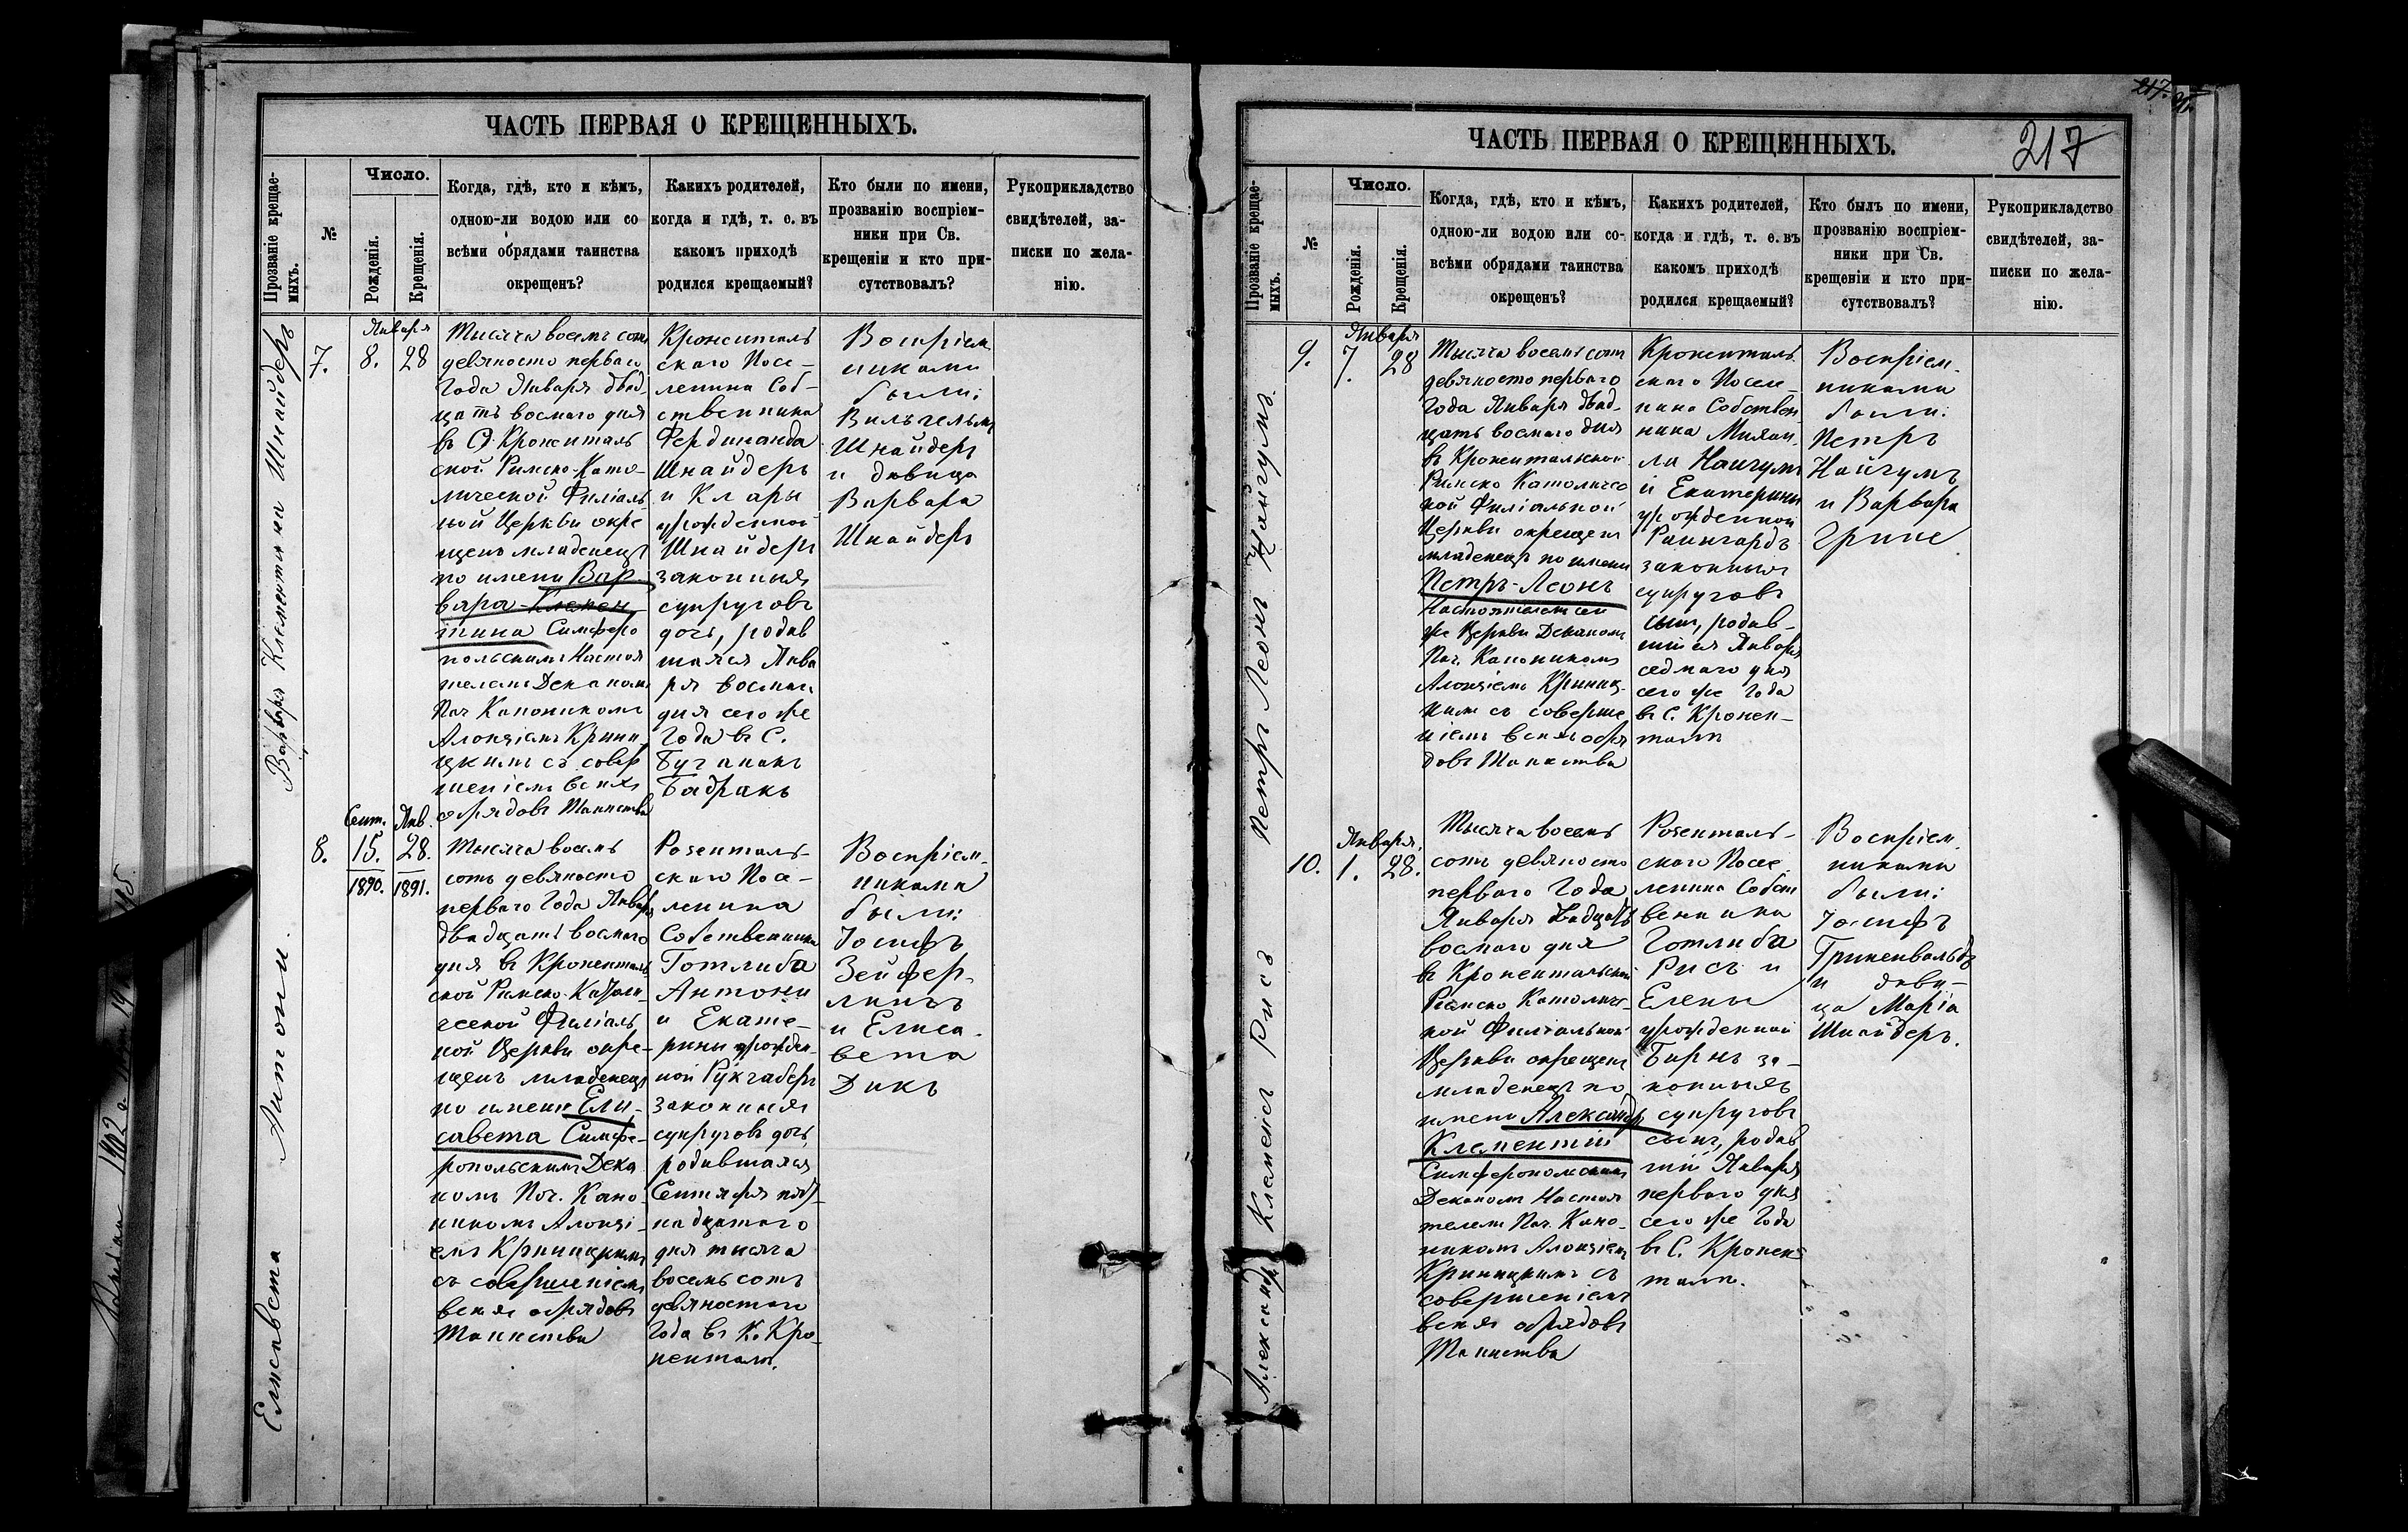 ЧАСТЬ ПЕРВАЯ О КРЕЩЕННЫХЪ.
Прозваніе крещае-
мыхъ.
№
Число.
Рожденія.
Крещенія.
Когда, гдѣ, кто и кѣмъ,
одною-ли водою или со
всѣми обрядами таинства
окрещенъ?
Какихъ родителей,
когда и гдѣ, т. е. въ
какомъ приходѣ
родился крещаемый?
Кто были по имени,
прозванію воспріем-
ники при Св.
крещеніи и кто при-
сутствовалъ?
Рукоприкладство
свидѣтелей, за-
писки по жела-
нію.
Варвара Клементина Шнайдеръ
7.
Января
8. 28
Тысяча восемь сотъ
девяносто перваго
Года Января двад-
цать восмаго дня
въ С. Кроненталь
ской Римско-Като-
лической Филіаль
ной Церкви окре
щенъ младенецъ
по имени Вар-
вара-Клемен
тина Симферо
польскимъ Настоя
телемъ Деканомъ
Поч Каноникомъ
Алоизіемъ Крини
цкимъ съ совер
шеніемъ всѣхъ
обрядовъ Таинства
Кроненталь
скаго Посе-
ленина Соб-
ственника
Фердинанда
Шнайдеръ
и Клары
урожденной
Шнайдеръ
законныхъ
супруговъ
дочь, родив
шаяся Янва
ря восмаго
дня сего же
Года въ С.
Бадракъ
Воспріем
никами
были:
Вильгельмъ
Шнайдеръ
и дѣвица
Варвара
Шнайдеръ
Елисавета Антони.
8.
Сент. Янв.
15. 28.
1890. 1891.
Тысяча восемь
сотъ девяносто
перваго Года Января
двадцать восмаго
дня въ Кроненталь
ской Римско-Католи-
ческой Филіаль
ной Церкви окре-
щенъ младенецъ
по имени Ели-
савета Симфе-
ропольскимъ Дека
номъ Поч. Кано-
никомъ Алоизі-
емъ Криницкимъ
съ совершеніемъ
всѣхъ обрядовъ
Таинства
Розенталь-
скаго Посе-
ленина
Собственника
Готлиба
Антони
и Екате-
рины урожден-
ной Рукгаберъ
законныхъ
супруговъ дочь,
родившаяся
Сентября пят-
надцатаго
дня тысяча
восемь сотъ
девяностаго
Года въ К. Кро-
ненталѣ.
Воспріем-
никами
были:
Іосифъ
Зейфер-
лингъ
и Елиса-
вета
Дикъ
ЧАСТЬ ПЕРВАЯ О КРЕЩЕННЫХЪ.
217
Прозваніе крещае-
мыхъ.
№
Число.
Рожденія.
Крещенія.
Когда, гдѣ, кто и кѣмъ,
одною-ли водою или со-
всѣми обрядами таинства
окрещенъ?
Какихъ родителей,
когда и гдѣ, т. е. въ
какомъ приходѣ
родился крещаемый?
Кто былъ по имени,
прозванію воспріем-
ники при Св.
крещеніи и кто при-
сутствовалъ?
Рукоприкладство
свидѣтелей, за-
писки по жела-
нію.
Петръ Леонъ Нангумъ.
9.
Января
7. 28
Тысяча восемь сотъ
девяносто перваго
Года Января двад-
цать восмаго дня
въ Кронентальской
Римско Католичес
кой Филіальной
Церкви окрещенъ
младенецъ по имени
Петръ-Леонъ
Настоятелемъ сей
же Церкви Деканомъ
Поч. Каноникомъ
Алоизіемъ Криниц-
кимъ съ соверше
ніемъ всѣхъ обря
довъ Таинства
Кроненталь
скаго Поселе-
нина Собствен
ника Михаи-
ла Нангумъ
и Екатерины
урожденной
Раингардъ
законныхъ
супруговъ
сынъ, родив-
шійся Января
седмаго дня
сего же Года
въ С. Кронен-
талѣ
Воспріем-
никами
были:
Петръ
Нангумъ
и Варвара
Грине
Александръ Клеменсъ Рисъ
10.
Января.
1. 28.
Тысяча восемь
сотъ девяносто
перваго Года
Января двадцать
восмаго дня
въ Кронентальской
Римско Католичес-
кой Филіальной
Церкви окрещенъ
младенецъ по
имени Александръ
Клементій
Симферопольскимъ
Деканомъ Настоя
телемъ Поч. Кано-
никомъ Алоизіемъ
Криницкимъ съ
совершеніемъ
всѣхъ обрядовъ
Таинства
Розенталь-
скаго Посе
ленина Собст
венника
Готлиба
Рисъ и
Елены
урожденной
Бирнъ за-
конныхъ
супруговъ
сынъ, родив
шій Января
перваго дня
сего же Года
въ С. Кронен-
талѣ.
Воспріем-
никами
были:
Іосифъ
Гриненвальдъ
и дѣви-
ца Марія
Шнайдеръ.